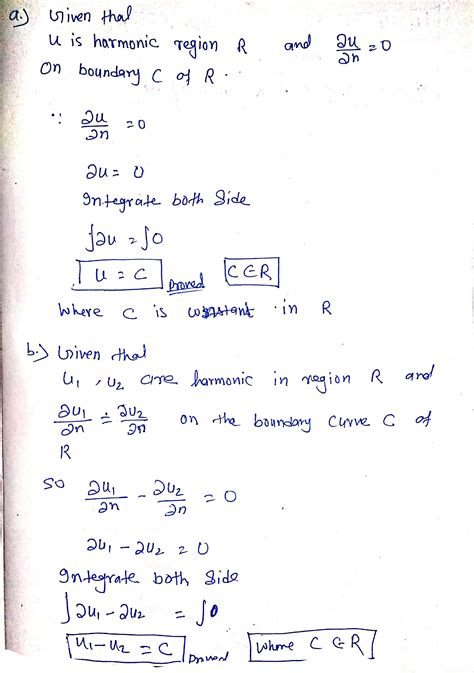 a.) Given that
u is harmonic region R and ∂u/∂n = 0
On boundary C of R.
∵ ∂u/∂n = 0
∂u = 0
Integrate both Side
∫∂u = ∫0
u = C Proved C∈R
Where C is constant in R
b.) Given that
u₁, u₂ are harmonic in region R and
∂u₁/∂n = ∂u₂/∂n on the boundary curve C of
R
SO ∂u₁/∂n - ∂u₂/∂n = 0
∂u₁ - ∂u₂ = 0
Integrate both Side
∫∂u₁ - ∂u₂ = ∫0
u₁-u₂ = C Proved where C∈R